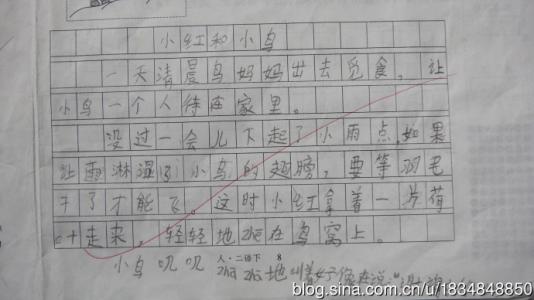 小红和小鸟
一天清晨鸟妈妈出去觅食，让
小鸟一个人待在家里。
没过一会儿下起了小雨点，如果
让雨淋湿了小鸟的翅膀，要等羽毛
干了才能飞。这时小红拿着一片荷
叶走来，轻轻地放在鸟窝上。
人·二语下 8
小鸟叽叽
地叫着好像在说：“
blog.sina.com.cn/u/1834848850